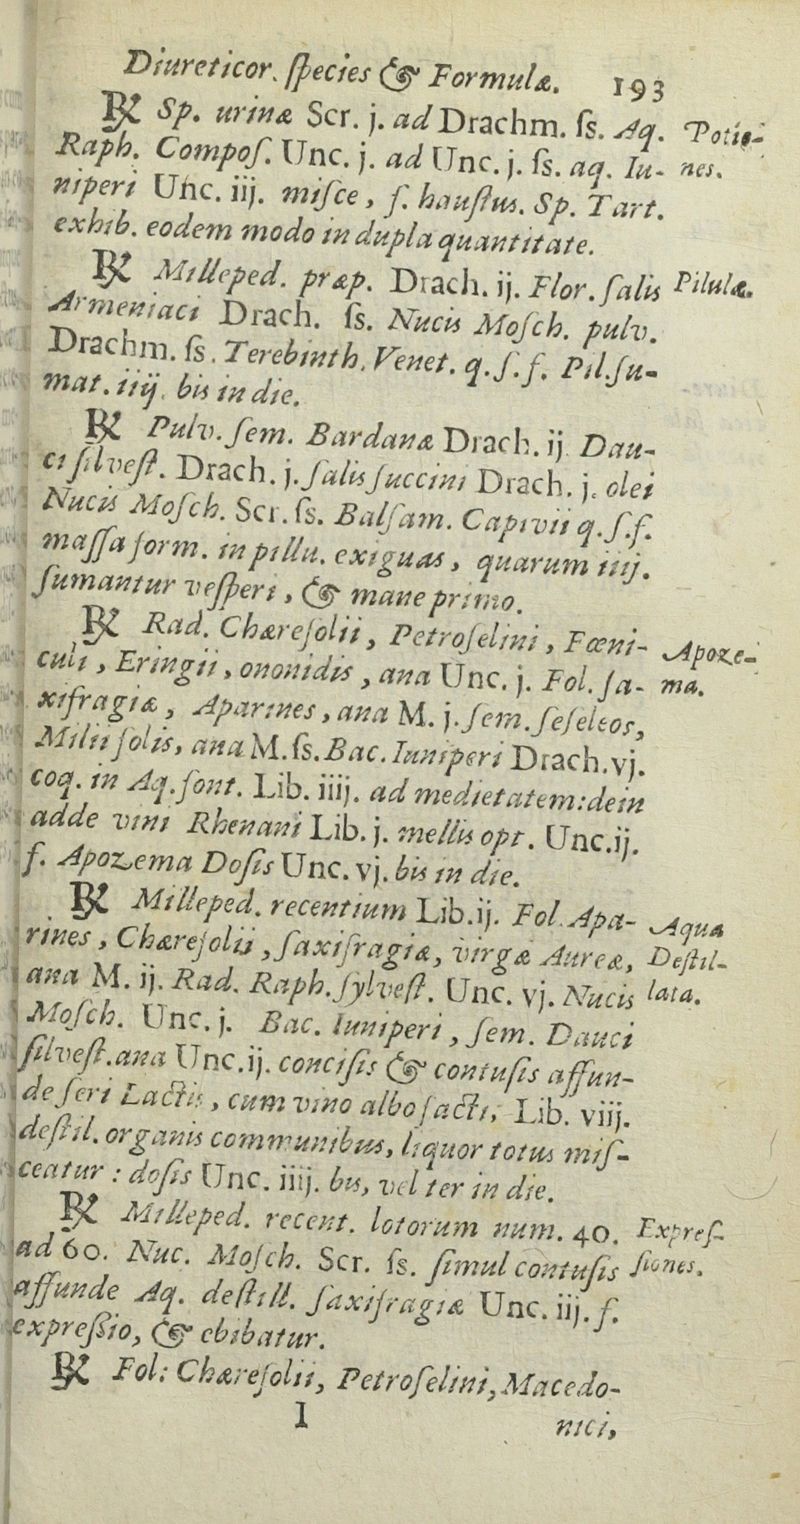 Diureticor. ſpecies & Formulæ. 193
℞ Sp. urinæ Scr. j. ad Drachm. ſs. Aq. Potio-
Raph. Compoſ. Unc. j. ad Unc. j. ſs. aq. Iu- nes.
niperi Unc. iij. miſce, f. hauſtus. Sp. Tart.
exhib. eodem modo in dupla quantitate.
℞ Milleped. præp. Drach. ij. Flor. ſalis Pilulæ.
Armeniaci Drach. ſs. Nucis Moſch. pulv.
Drachm. ſs. Terebinth. Venet. q. ſ. f. Pil. ſu-
mat. iiij. bis in die.
℞ Pulv. ſem. Bardanæ Drach. ij Dau-
ci ſilveſt. Drach. j. ſalis ſuccini Drach. j. olei
Nucis Moſch. Scr. ſs. Balſam. Capivii q. ſ. f.
maſſa form. in pillu. exiguas, quarum iiij.
ſumantur veſperi, & mane primo.
℞ Rad. Chærefolii, Petroſelini, Fœni- Apoze-
culi, Eringii, ononidis, ana Unc. j. Fol. ſa- ma.
xifragiæ, Aparines, ana M. j. ſem. ſeſeleos,
Milii ſolis, ana M. ſs. Bac. Iuniperi Drach. vj.
coq. in Aq. font. Lib. iiij. ad medietatem: dein
adde vini Rhenani Lib. j. mellis opt. Unc. ij.
f. Apozema Doſis Unc. vj. bis in die.
℞ Milleped. recentium Lib. ij. Fol. Apa- Aqua
rines, Chærefolii, ſaxifragiæ, virgæ Aureæ, Deſtil-
ana M. ij. Rad. Raph. ſylveſt. Unc. vj. Nucis lata.
Moſch. Unc. j. Bac. Iuniperi, ſem. Dauci
ſilveſt. ana Unc. ij. conciſis & contuſis affun-
de ſeri Lactis, cum vino albo facti, Lib. viij.
deſtil. organis communibus, liquor totus miſ-
ceatur: doſis Unc. iiij. bis, vel ter in die.
℞ Milleped. recent. lotorum num. 40. Expreſ-
ad 60. Nuc. Moſch. Scr. ſs. ſimul contuſis ſiones.
affunde Aq. deſtill. ſaxifragiæ Unc. iij. f.
expreſſio, & ebibatur.
℞ Fol: Chærefolii, Petroſelini, Macedo-
l nici,